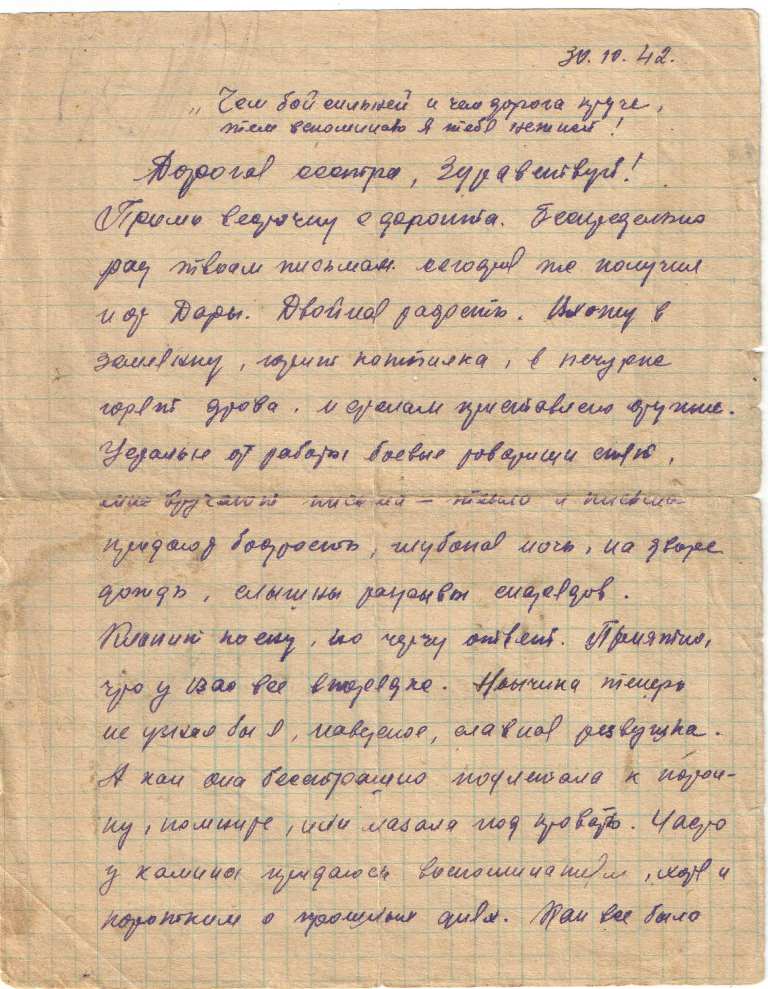 30.10.42.
„Чем бой сильней и чем дорога круче,
тем вспоминаю я тебя нежней!
Дорогая сестра, Здравствуй!
Прими весточку с фронта. Беспредельно
рад твоим письмам. Сегодня же получил
и от Дары. Двойная радость. Вхожу в
землянку, горит коптилка, в печурке
горят дрова, к стенам приставлено оружие.
Усталые от работы боевые товарищи спят,
мне вручают письма – тыла и письма
придают бодрость, глубокая ночь, на дворе
дождь, слышны разрывы снарядов.
Клонит ко сну, но черчу ответ. Приятно,
что у Вас все в порядке. теперь
не узнал бы я, наверное, славная резвушка.
А как она бесстрашно подлезала к
ну, помните, или лазала под кровать. Часто
у камина придаюсь воспоминаниям, хотя и
коротким о прошлых днях. Как все было